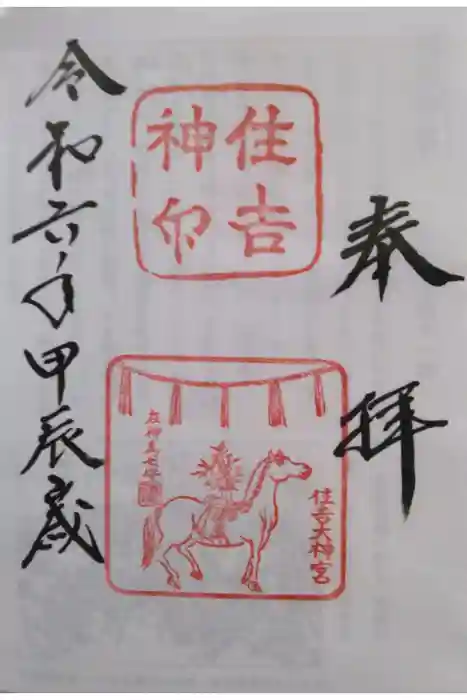 奉拝
住吉
神印
住吉大神宮
令和六年甲辰歳